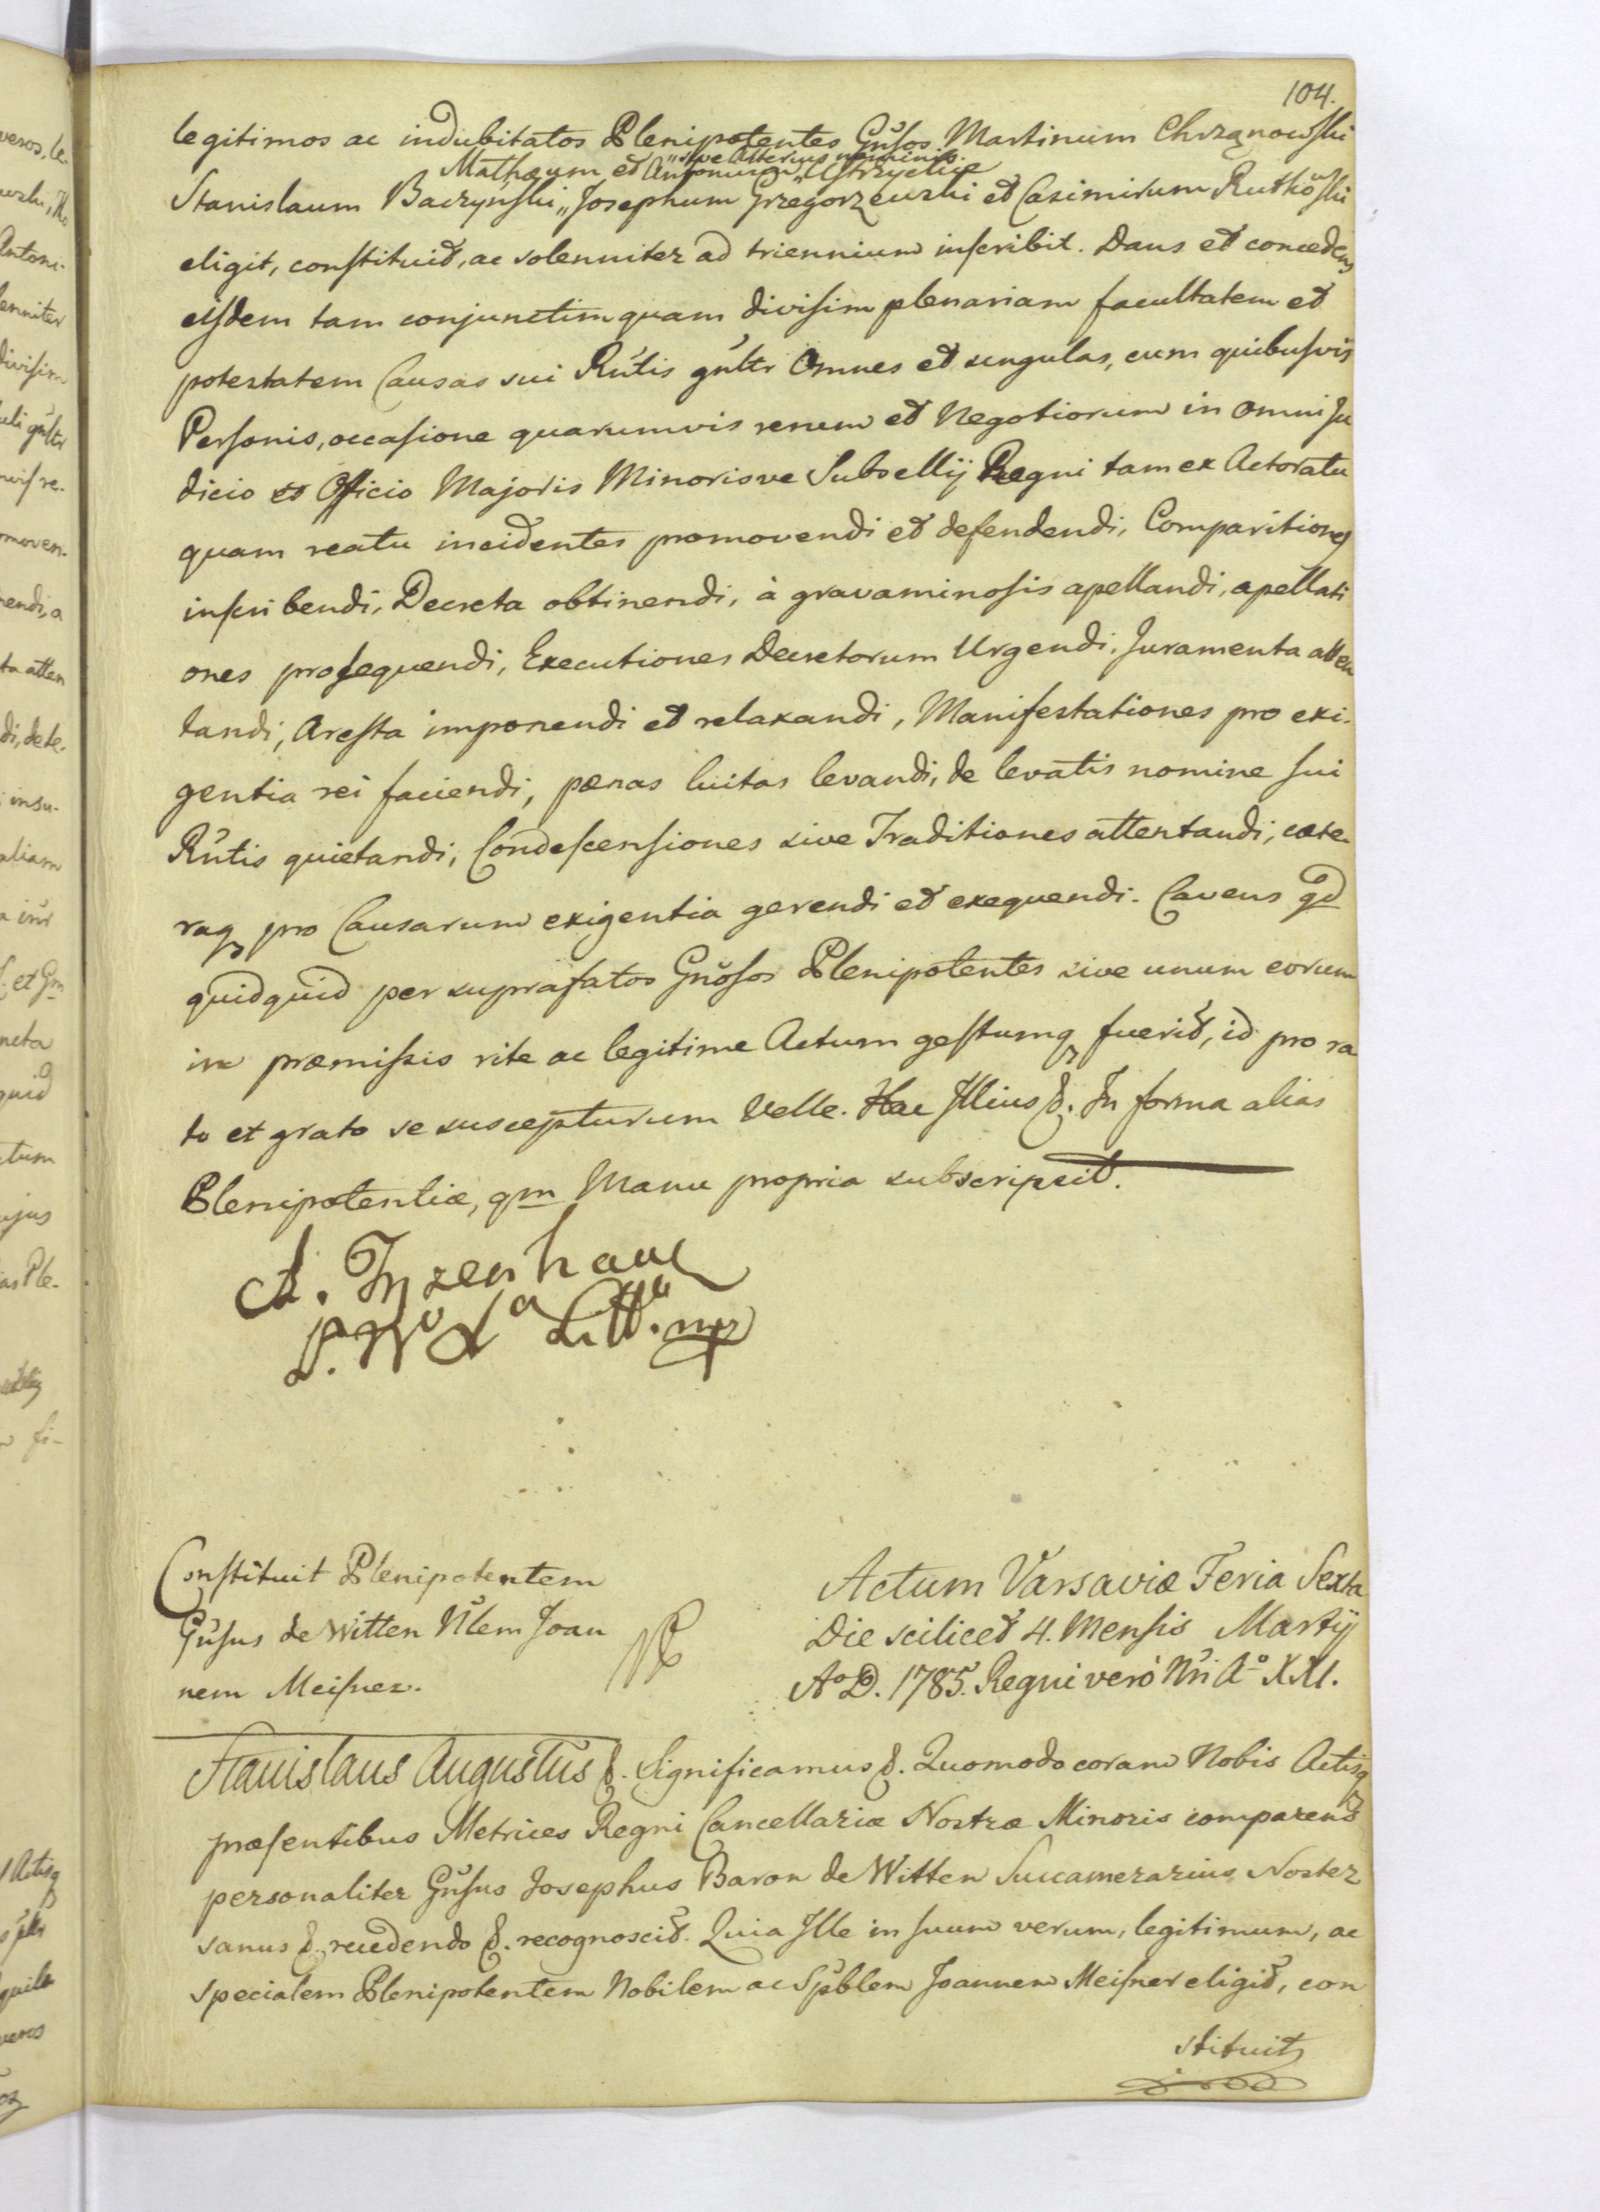 104.
legitimos ac indubitatos Plenipotentes Gnŭsos Martinum Chrząnowski
Mathæum et Antonium „sive alterius nominis„ Ustrzyckie
Stanislaum Baczyński „ Josephum Grzegorzewski et Casimirum Rutkowski
eligit, constituit, ac solenniter ad triennium inscribit. Dans et concedens
eisdem tam conjunctim quam divisim plenariam facultatem et
potestatem Causas sui Rn̆tis gn̆ltr Omnes et singulas, cum quibusvis
Personis, occasione quarumvis rerum et Negotiorum in omni Ju
dicio et Officio Majoris Minorisve Subsellij Regni tam ex Actoratu
quam reatu incidentes promovendi et defendendi, Comparitiones
inscribendi, Decreta obtinendi, à gravaminosis apellandi, apellati
ones prosequendi, Executiones Decretorum Urgendi, Juramenta atten
tandi, Aresta imponendi et relaxandi, Manifestationes pro exi-
gentia rei faciendi, pœnas luitas levandi, de levatis nomine sui
Rn̆tis quietandi, Condescensiones sive Traditiones attentandi, cæte-
raq pro Causarum exigentia gerendi et exequendi. Cavens qd
quidquid per suprafatos Gnŏsos Plenipotentes sive unum eorum
in præmissis rite ac legitime Actum gestumq fuerit, id pro ra
to et grato se suscepturum Velle. Hac Illius &. In forma alias
Plenipotentiæ, qm Manu propria subscripsit.
A. Tyzenhauz
P. W° X° Litt° mp
Constituit Plenipotentem
Gn̆sus de Witten Nlem Joan
nem Meisner.
Actum Varsaviæ Feria Sexta
Die scilicet 4. Mensis Martij
A° D. 1785. Regni verò Nri A° XXI.
Stanislaus Augustus &. Significamus &. Quomodo coram Nobis Actisq
præsentibus Metrices Regni Cancellariæ Nostræ Minoris comparens
personaliter Gn̆sus Josephus Baron de Witten Succamerarius Noster
sanus & recedendo &. recognoscit. Quia Ille in suum verum, legitimum, ac
specialem Plenipotentem Nobilem ac Spĕblem Joannem Meisner eligit, con
stituit